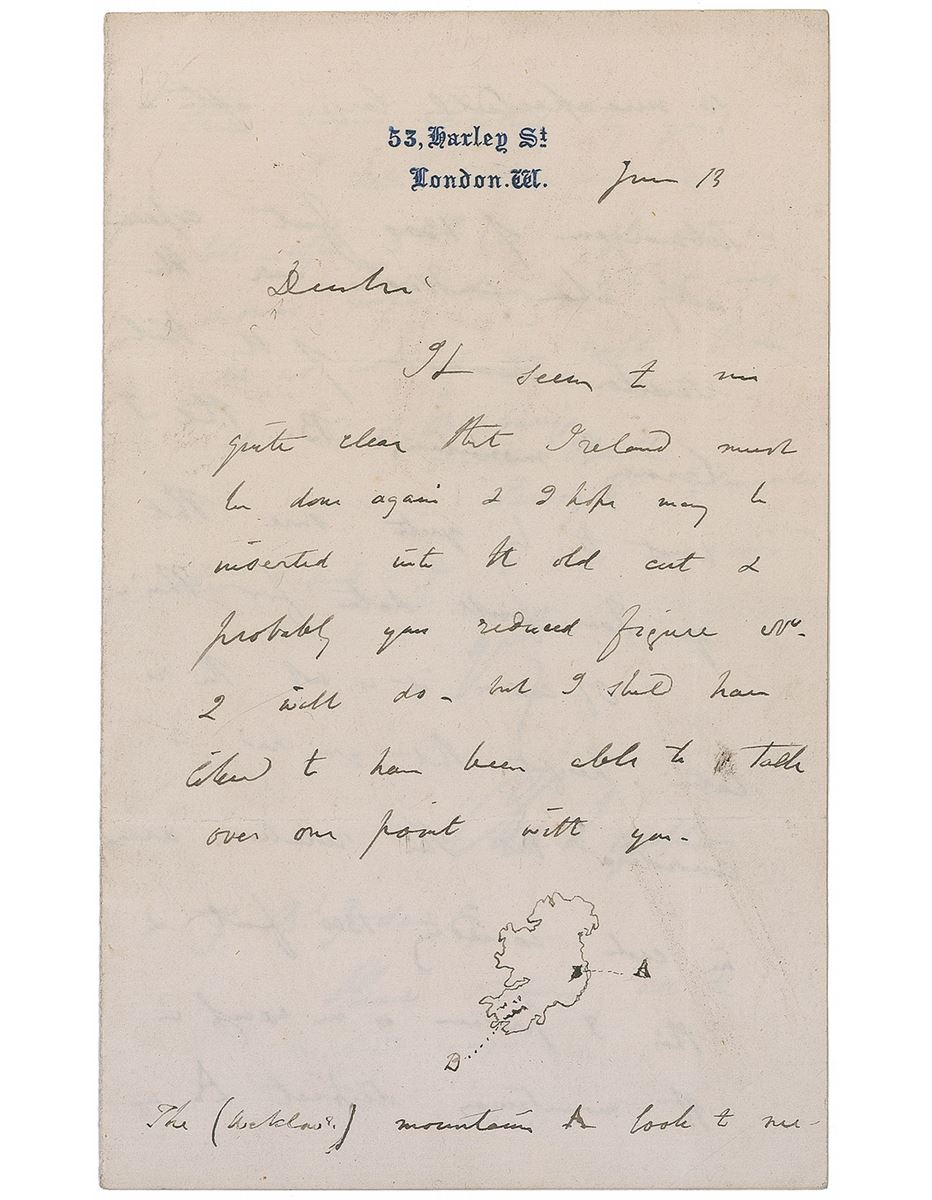 53, Harley St
London. W.
June 13
It seems to me
quite clear that Ireland must
be done again & I hope may be
inserted into the old cut &
probably your reduced figure No.
2 will do - but I shld have
liked to have been able to talk
over one point with you -
A
B
The (Wicklow?) mountains A look to me -